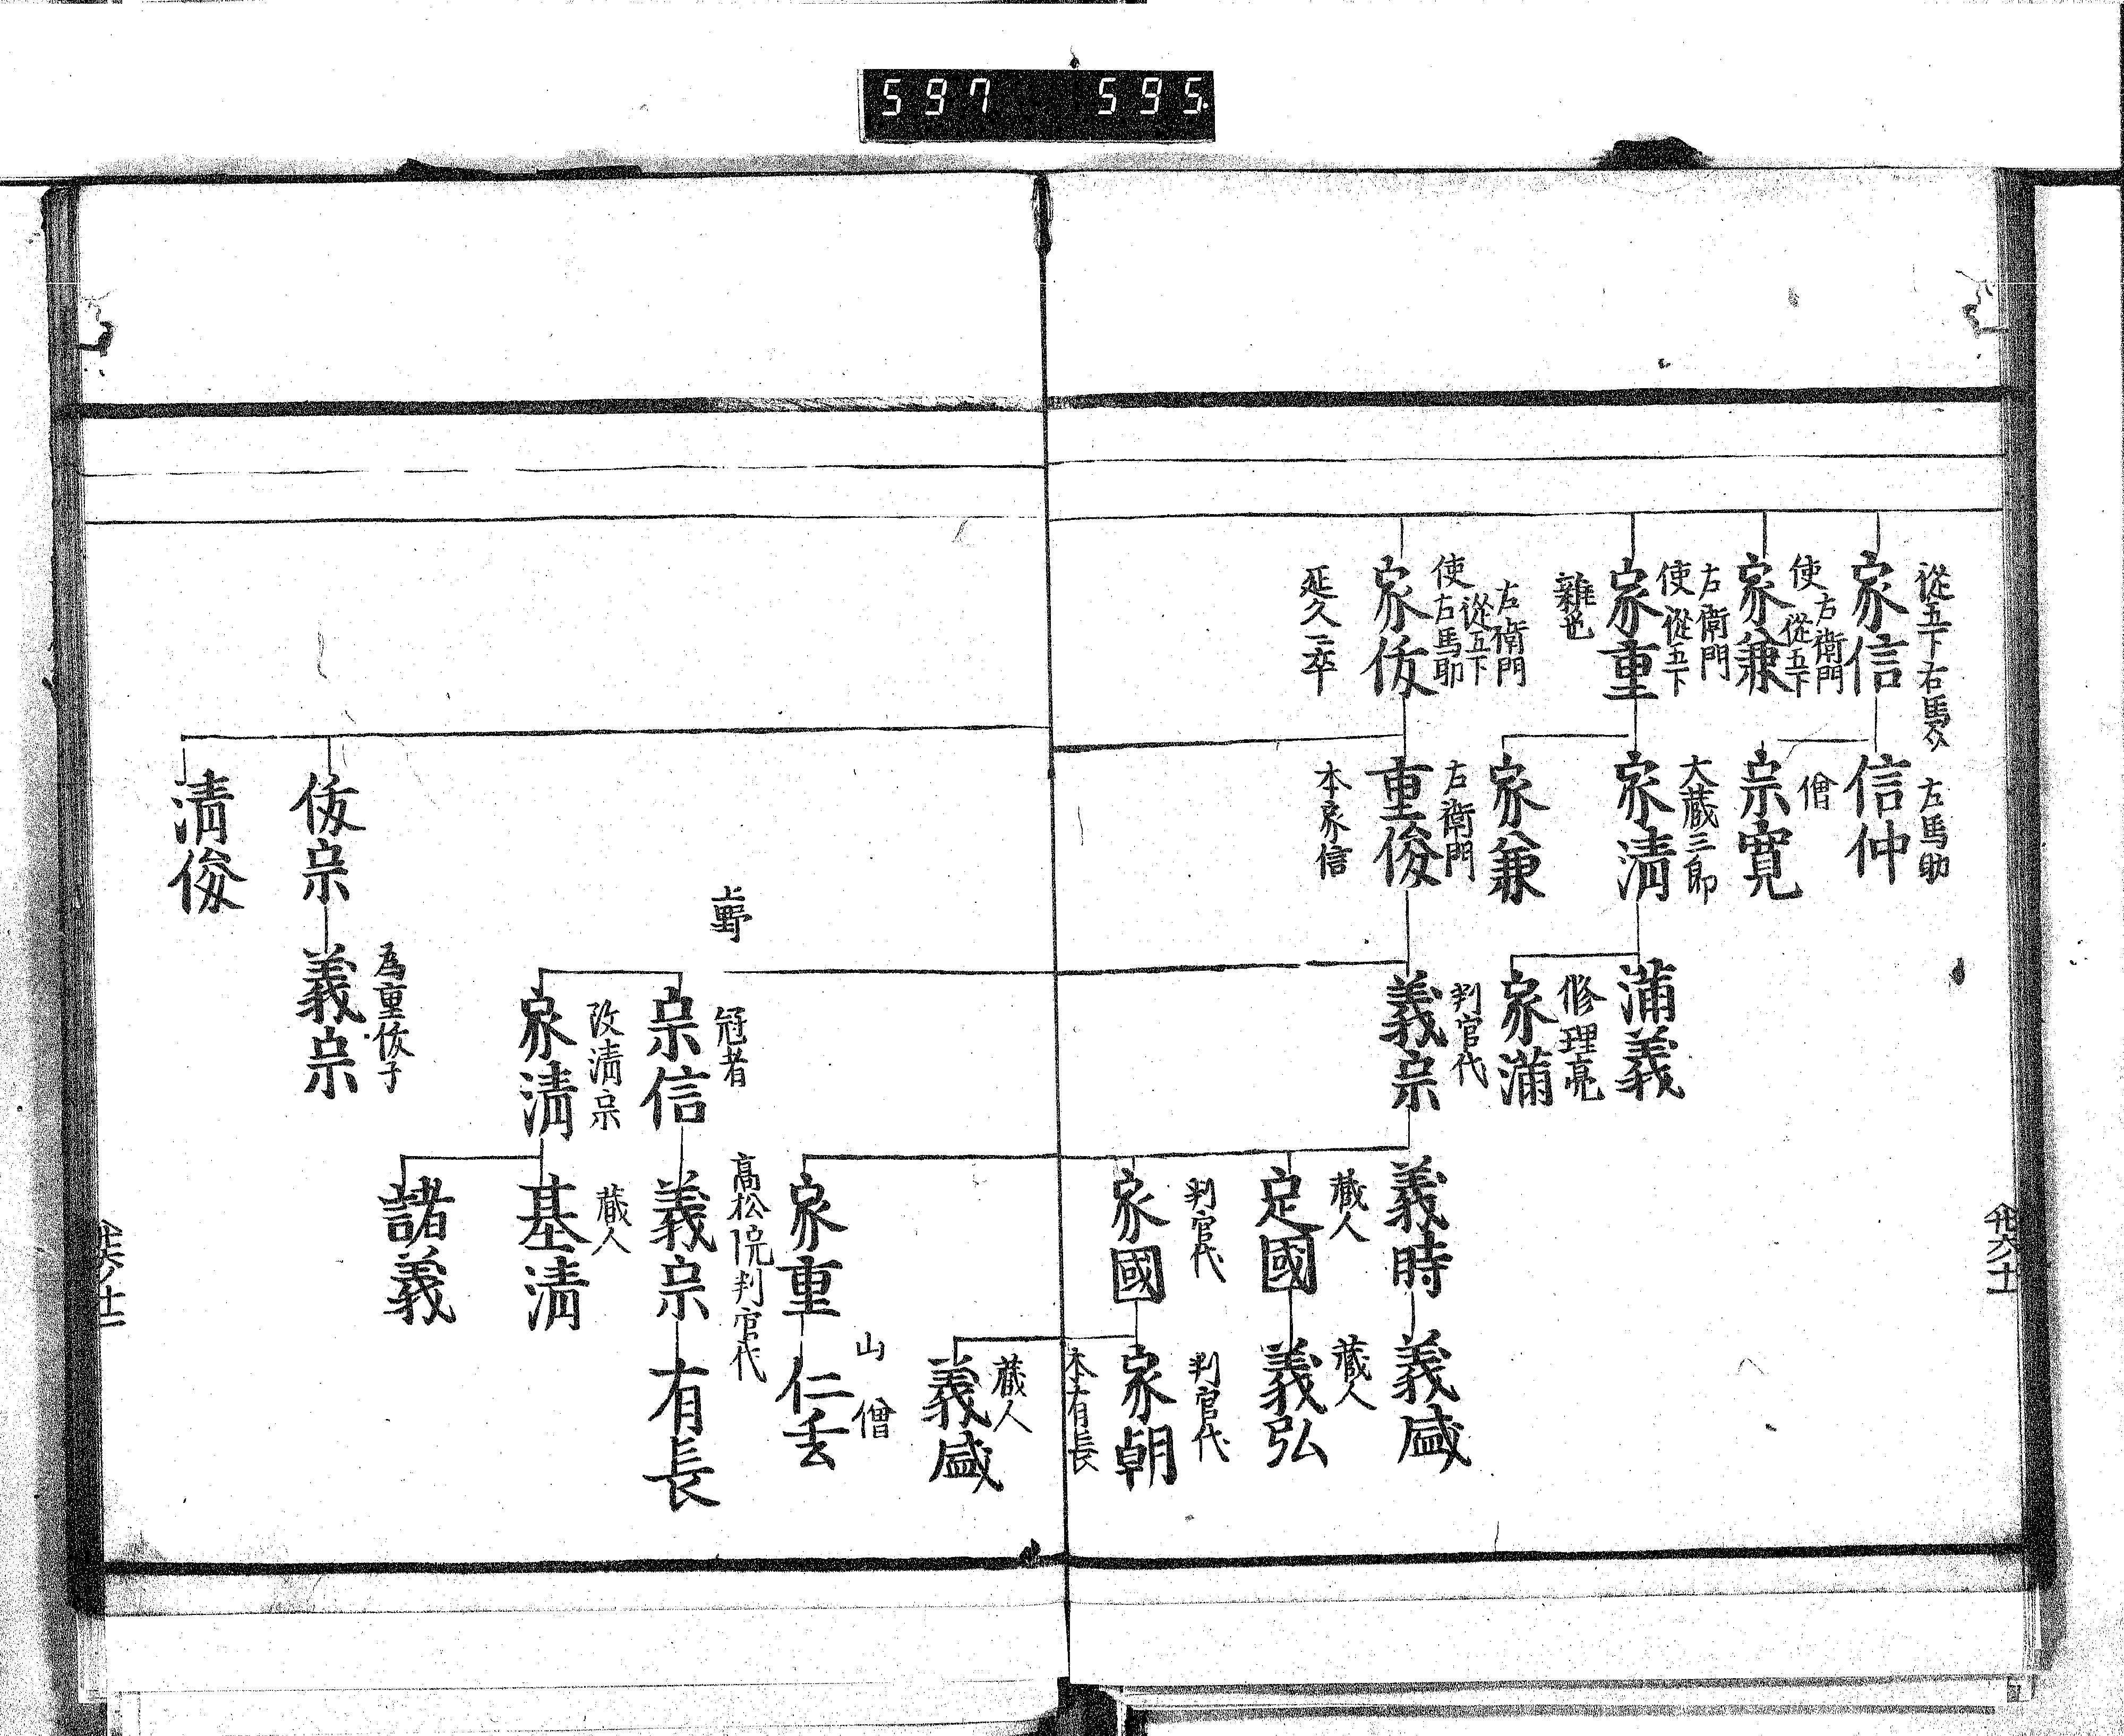 597 595
從五下右馬允
家信
使右衛門
從五下
家兼
右衛門
使從五下
家重
雜也
右衛門
從五下
使右馬助
家俊
延久二卒
左馬助
信仲
僧
宗寛
大蔵三郎
家清
家兼
右衛門
重俊
本家信
満義
修理亮
家満
判官代
義宗
義時
蔵人
定國
判官代
家國
義盛
蔵人
義弘
判官代
家朝
本有長
蔵人
義盛
家重
山僧
仁
上野
冠者
宗信
改清宗
家清
高松院判官代
義宗
蔵人
基清
諸義
有長
俊宗
清俊
為重俊子
義宗